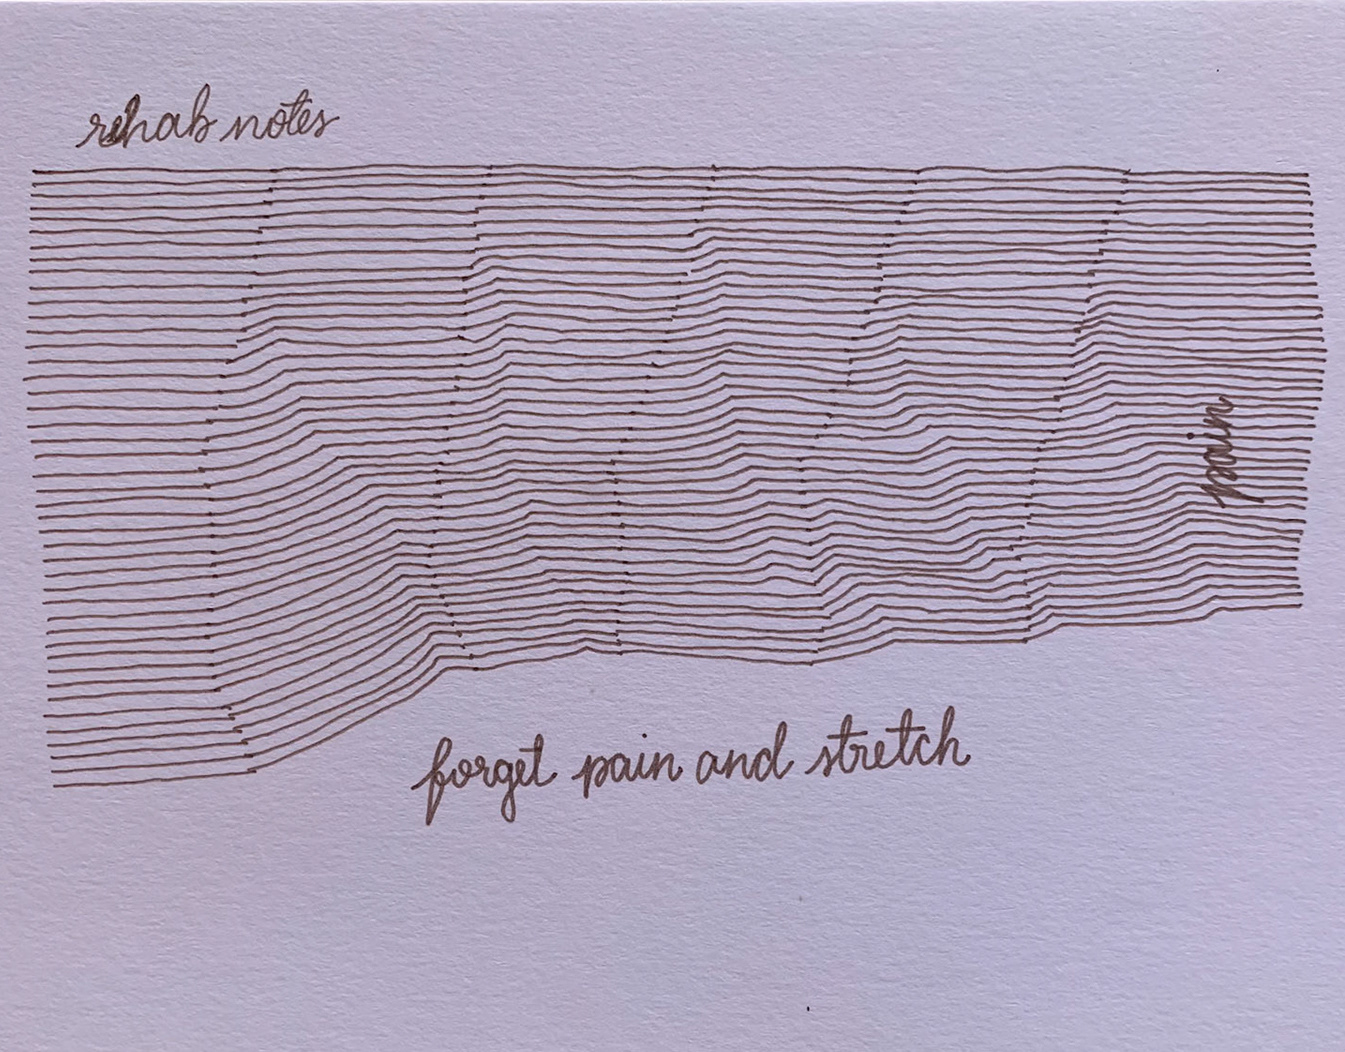 rehab notes
pain
forget pain and stretch